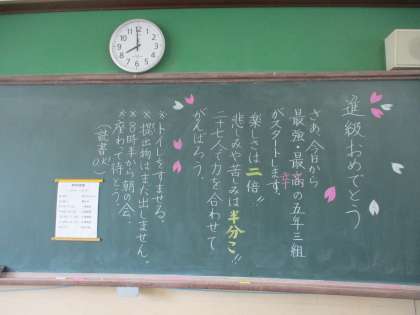 進級おめでとう
さあ、今日から
最強・最高の五年三組
がスタートします。
楽しさは二倍!!
悲しみや苦しみは半分こ!!
二十七人で力を合わせて
がんばろう。
※トイレをすませる。
※提出物はまだ出しません。
※8時半から朝の会。
※座わって待とう。
(読書OK!)